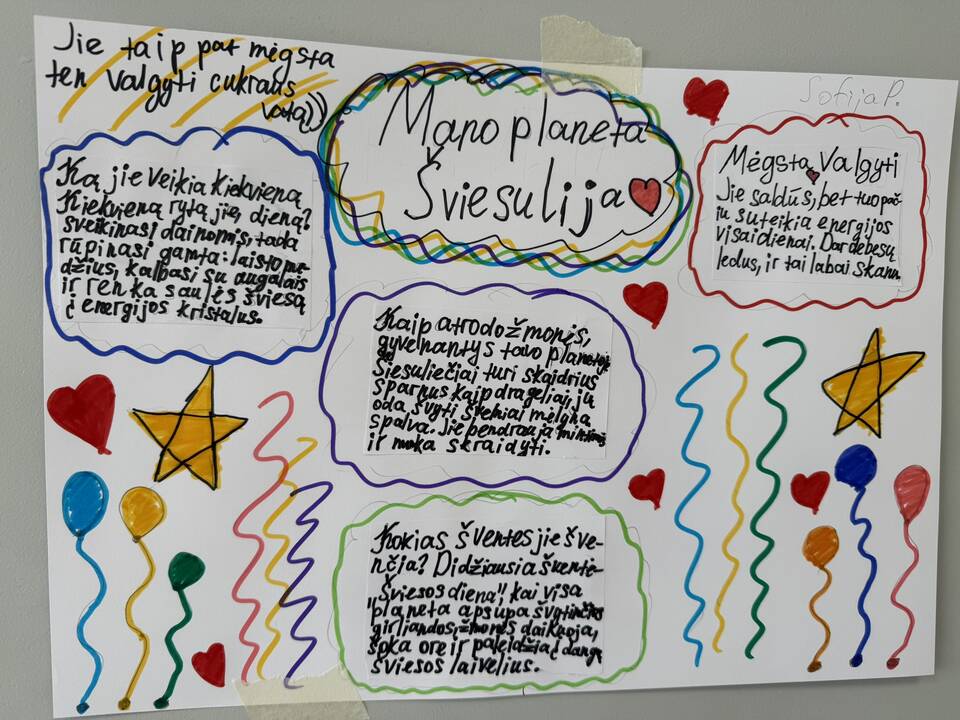 Jie taip pat mėgsta
ten valgyti cukraus
vatą))
Mano planeta
Šviesulija
Sofija P.
Ką jie veikia kiekvieną
Kiekvieną rytą jie, dieną?
sveikinasi dainomis, tada
rūpinasi gamta: laisto me-
džius, kalbasi su augalais
ir renka saulės šviesą
į energijos kristalus.
Mėgsta Valgyti
Jie saldūs, bet tuo pač-
iu suteikia energijos
visai dienai. Dar debesų
ledus, ir tai labai skanu.
Kaip atrodo žmonės,
gyvenantys tavo planetoje
Šiesuliečiai turi skaidrius
sparnus kaip drugeliai, jų
oda švyti švelniai mėlyna
spalva. Jie bendrauja mintimis
ir moka skraidyti.
Kokias šventes jie šve-
nčia? Didžiausia šventė
"Šviesos diena", kai visa
planeta apsupa švytinčios
girliandos, žmonės dainuoja,
šoka ore ir paleidžia į dangų
šviesos laivelius.